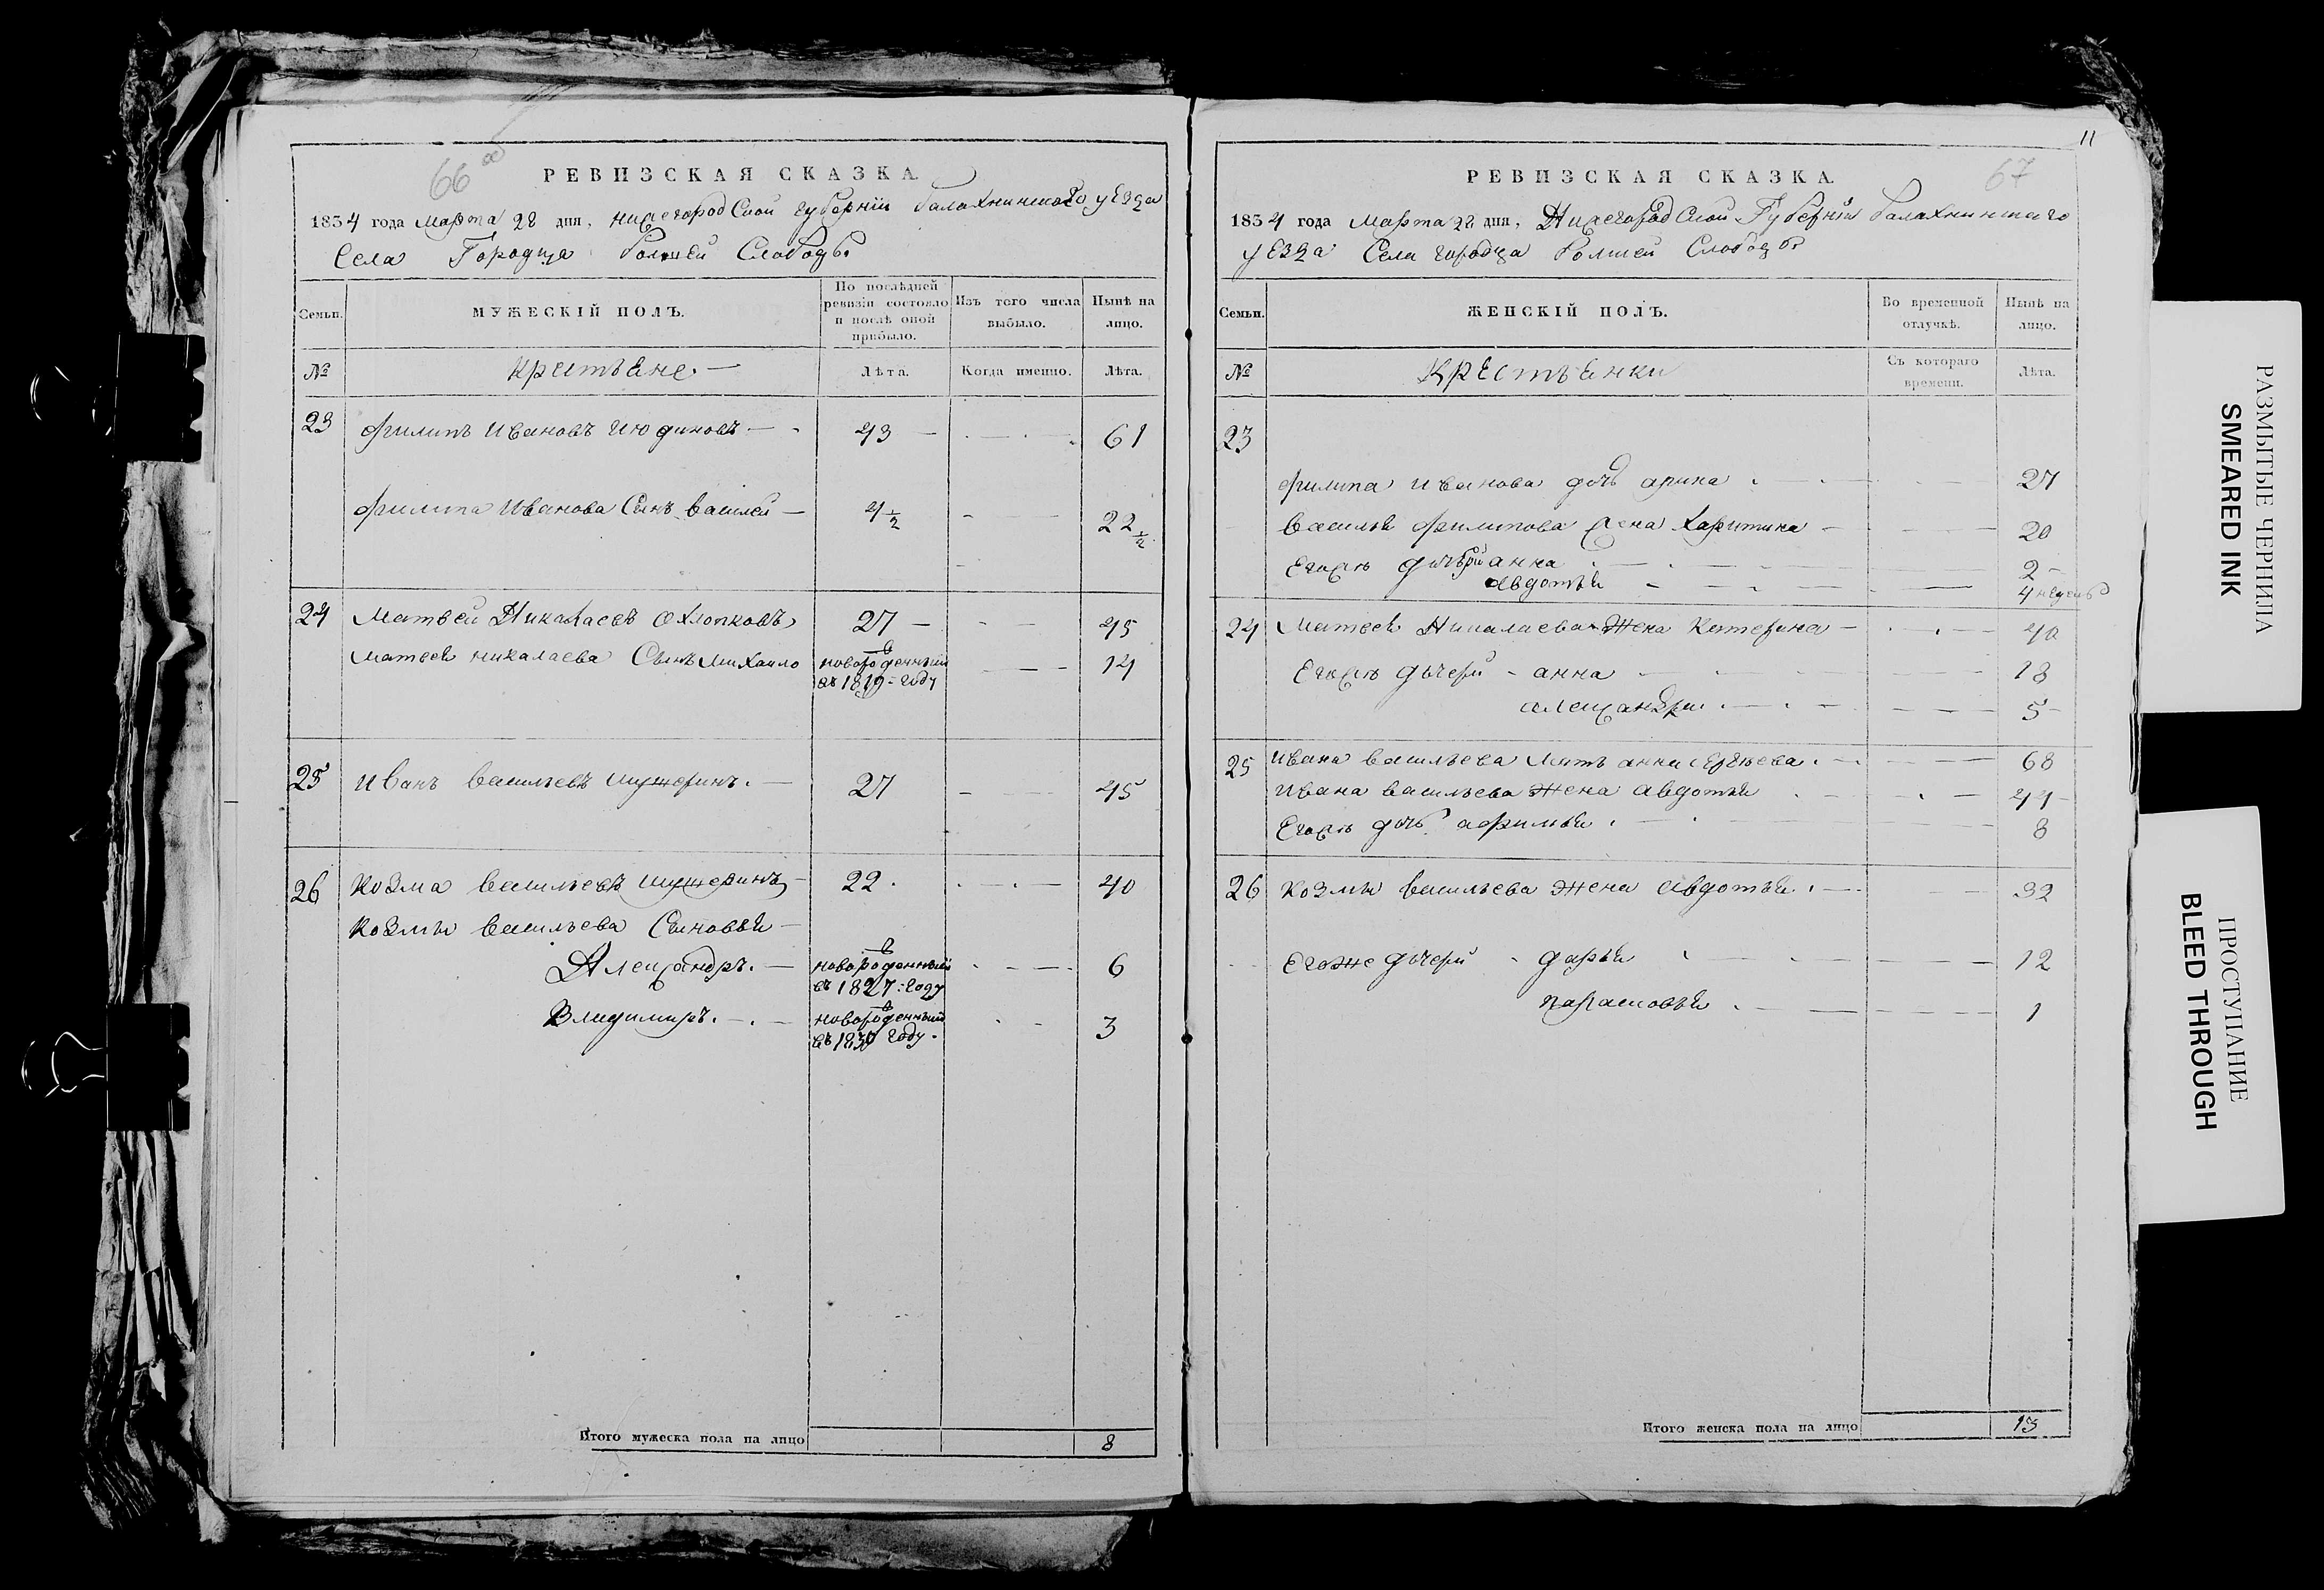 66 об
РЕВИЗСКАЯ СКАЗКА.
1834 года Марта 28 дня, нижегородской губернїи балахнинскаго уезда
Села Городца болшей Слободы
Семьи.
МУЖЕСКІЙ ПОЛЪ.
По послѣдней ревизіи состояло и послѣ оной прибыло.
Изъ того числа выбыло.
Нынѣ на лицо.
№
крестьяне.
Лѣта.
Когда именно.
Лѣта.
23 Филипъ Ивановъ Июдиновъ 43 61
Филипа Иванова Сынъ василей 4½ 22½
24 Матвей Николаевъ Охлопковъ 27 45
Матвея николаева Сынъ Михаило новорожденный въ 1819 году 14
25 Иванъ васильевъ шужеринъ. 27 45
26 Козма васильевъ шужеринъ 22. 40
Козмы васильева Сыновья
Александръ. новорожденный въ 1827: году 6
Владимиръ. новорожденный въ 1830 году. 3
Итого мужеска пола на лицо 8
11
67
РЕВИЗСКАЯ СКАЗКА.
1834 года Марта 28 дня, Нижегородской Губернїи балахнинскаго
уезда Села городца болшей Слободы
Семьи.
ЖЕНСКІЙ ПОЛЪ.
Во временной отлучкѣ.
Нынѣ на лицо.
№
Крестьянки
Съ котораго времени.
Лѣта.
23
Филипа иванова дочь арина 27
василья филипова жена Харитина 20
Егожъ дочери анна 2
авдотья 4 недель
24 Матвея Николаева Жена Катерина 40
Егожъ дочери анна 18
александра 5
25 ивана васильева мать анна сергеева 68
ивана васильева жена авдотья 44
Егожъ дочь афимья 8
26 козмы васильева жена авдотья 32
Егоже дочери дарья 12
парасковья 1
Итого женска пола на лицо 13
РАЗМЫТЫЕ ЧЕРНИЛА
SMEARED INK
ПРОСТУПАНИЕ
BLEED THROUGH